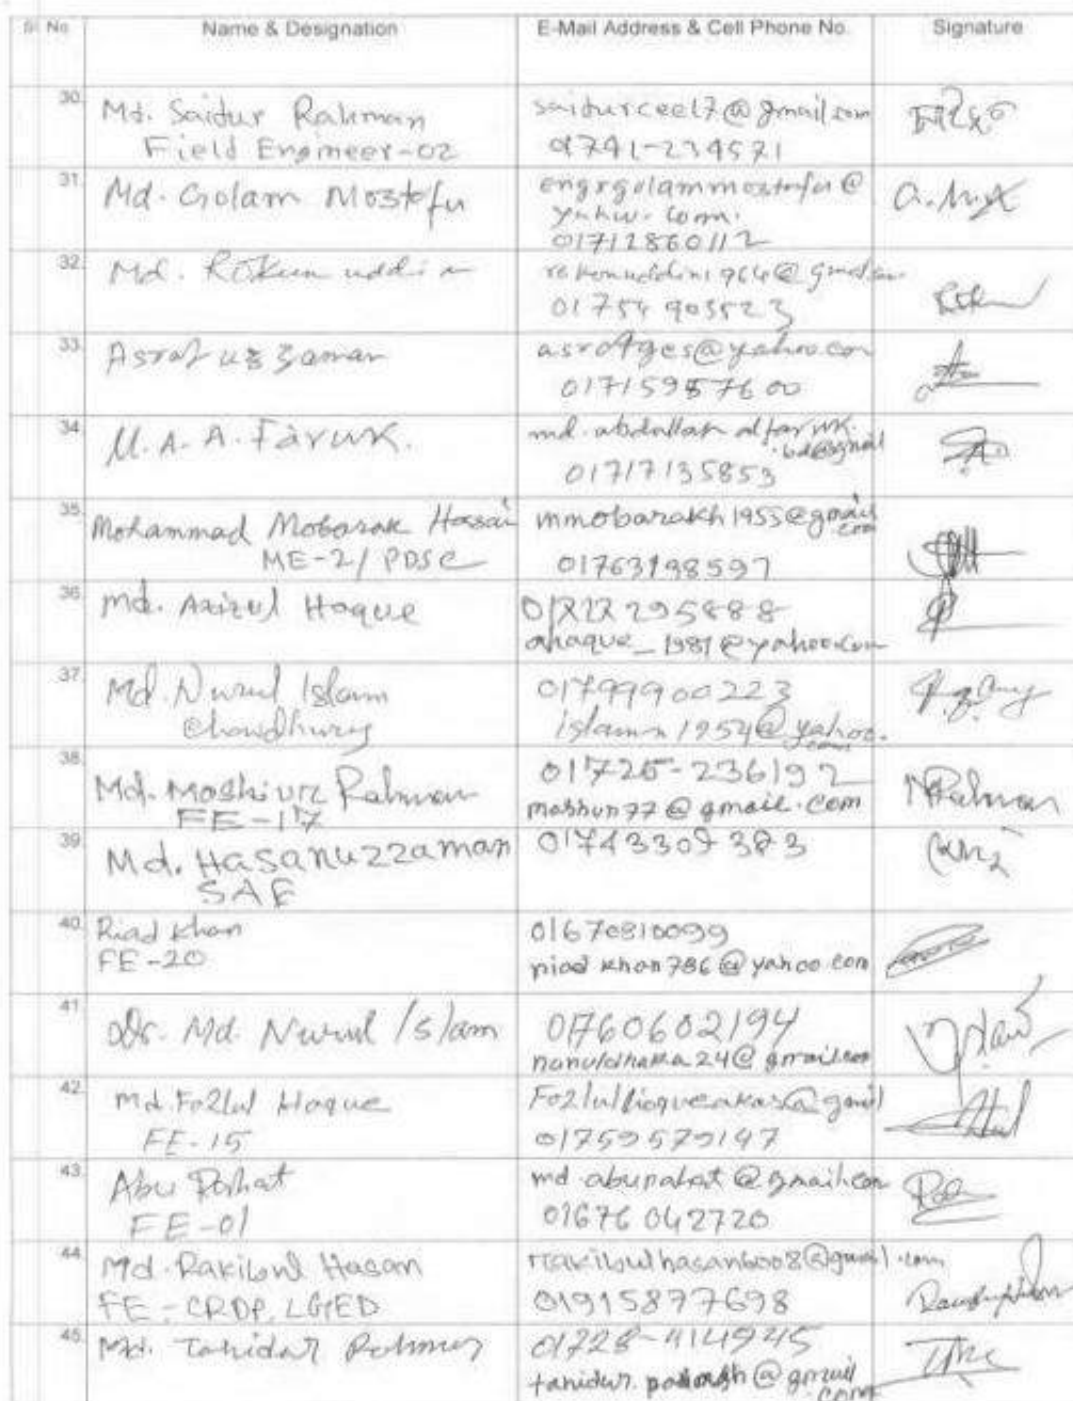 Sl No
Name & Designation
E-Mail Address & Cell Phone No.
Signature
30
Md. Saidur Rahman
Field Engineer-02
saidurcee17@gmail.com
01741-234571
31
Md. Golam Mostofa
engrgolammostofa@
yahoo.com.
01712860112
32
Md. Rokun uddin
01754 903523
33
Asraf uz zaman
@yahoo.com
34
M. A. A. Faruk.
md.abdallah alfaruk.
bd@gmail
01717135853
35
Mohammad Mobarak Hossai
ME-2/ PDSC
mmobarakh1953@gmail
.com
01763198597
36
Md. Azizul Hoque
ahaque_1981@yahoo.com
37
Md. Nurul Islam
Chowdhury
01799900223
islamn1954@yahoo.
com
38
Md. Moshiur Rahman
FE-17
01725-236192
moshiun77@gmail.com
MRahman
39
Md. Hasanuzzaman
SAE
40
Riad Khan
FE-20
01670810099
riad khan786@yahoo.com
41
Dr. Md. Nurul Islam
01760602194
nurul dhaka24@gmail.com
42
Md. Fozlul Hoque
FE-15
Fozlulhoqueakas@gmail
01759579147
43
Abu Rahat
FE-01
md.aburahat@gmail.com
01676 042720
44
Md. Rakibul Hasan
FE-CRDP, LGED
rrakibulhasan6008@gmail.com
01915877698
45
Md. Tahidur Rahman
01728-4114945
@gmail
.com